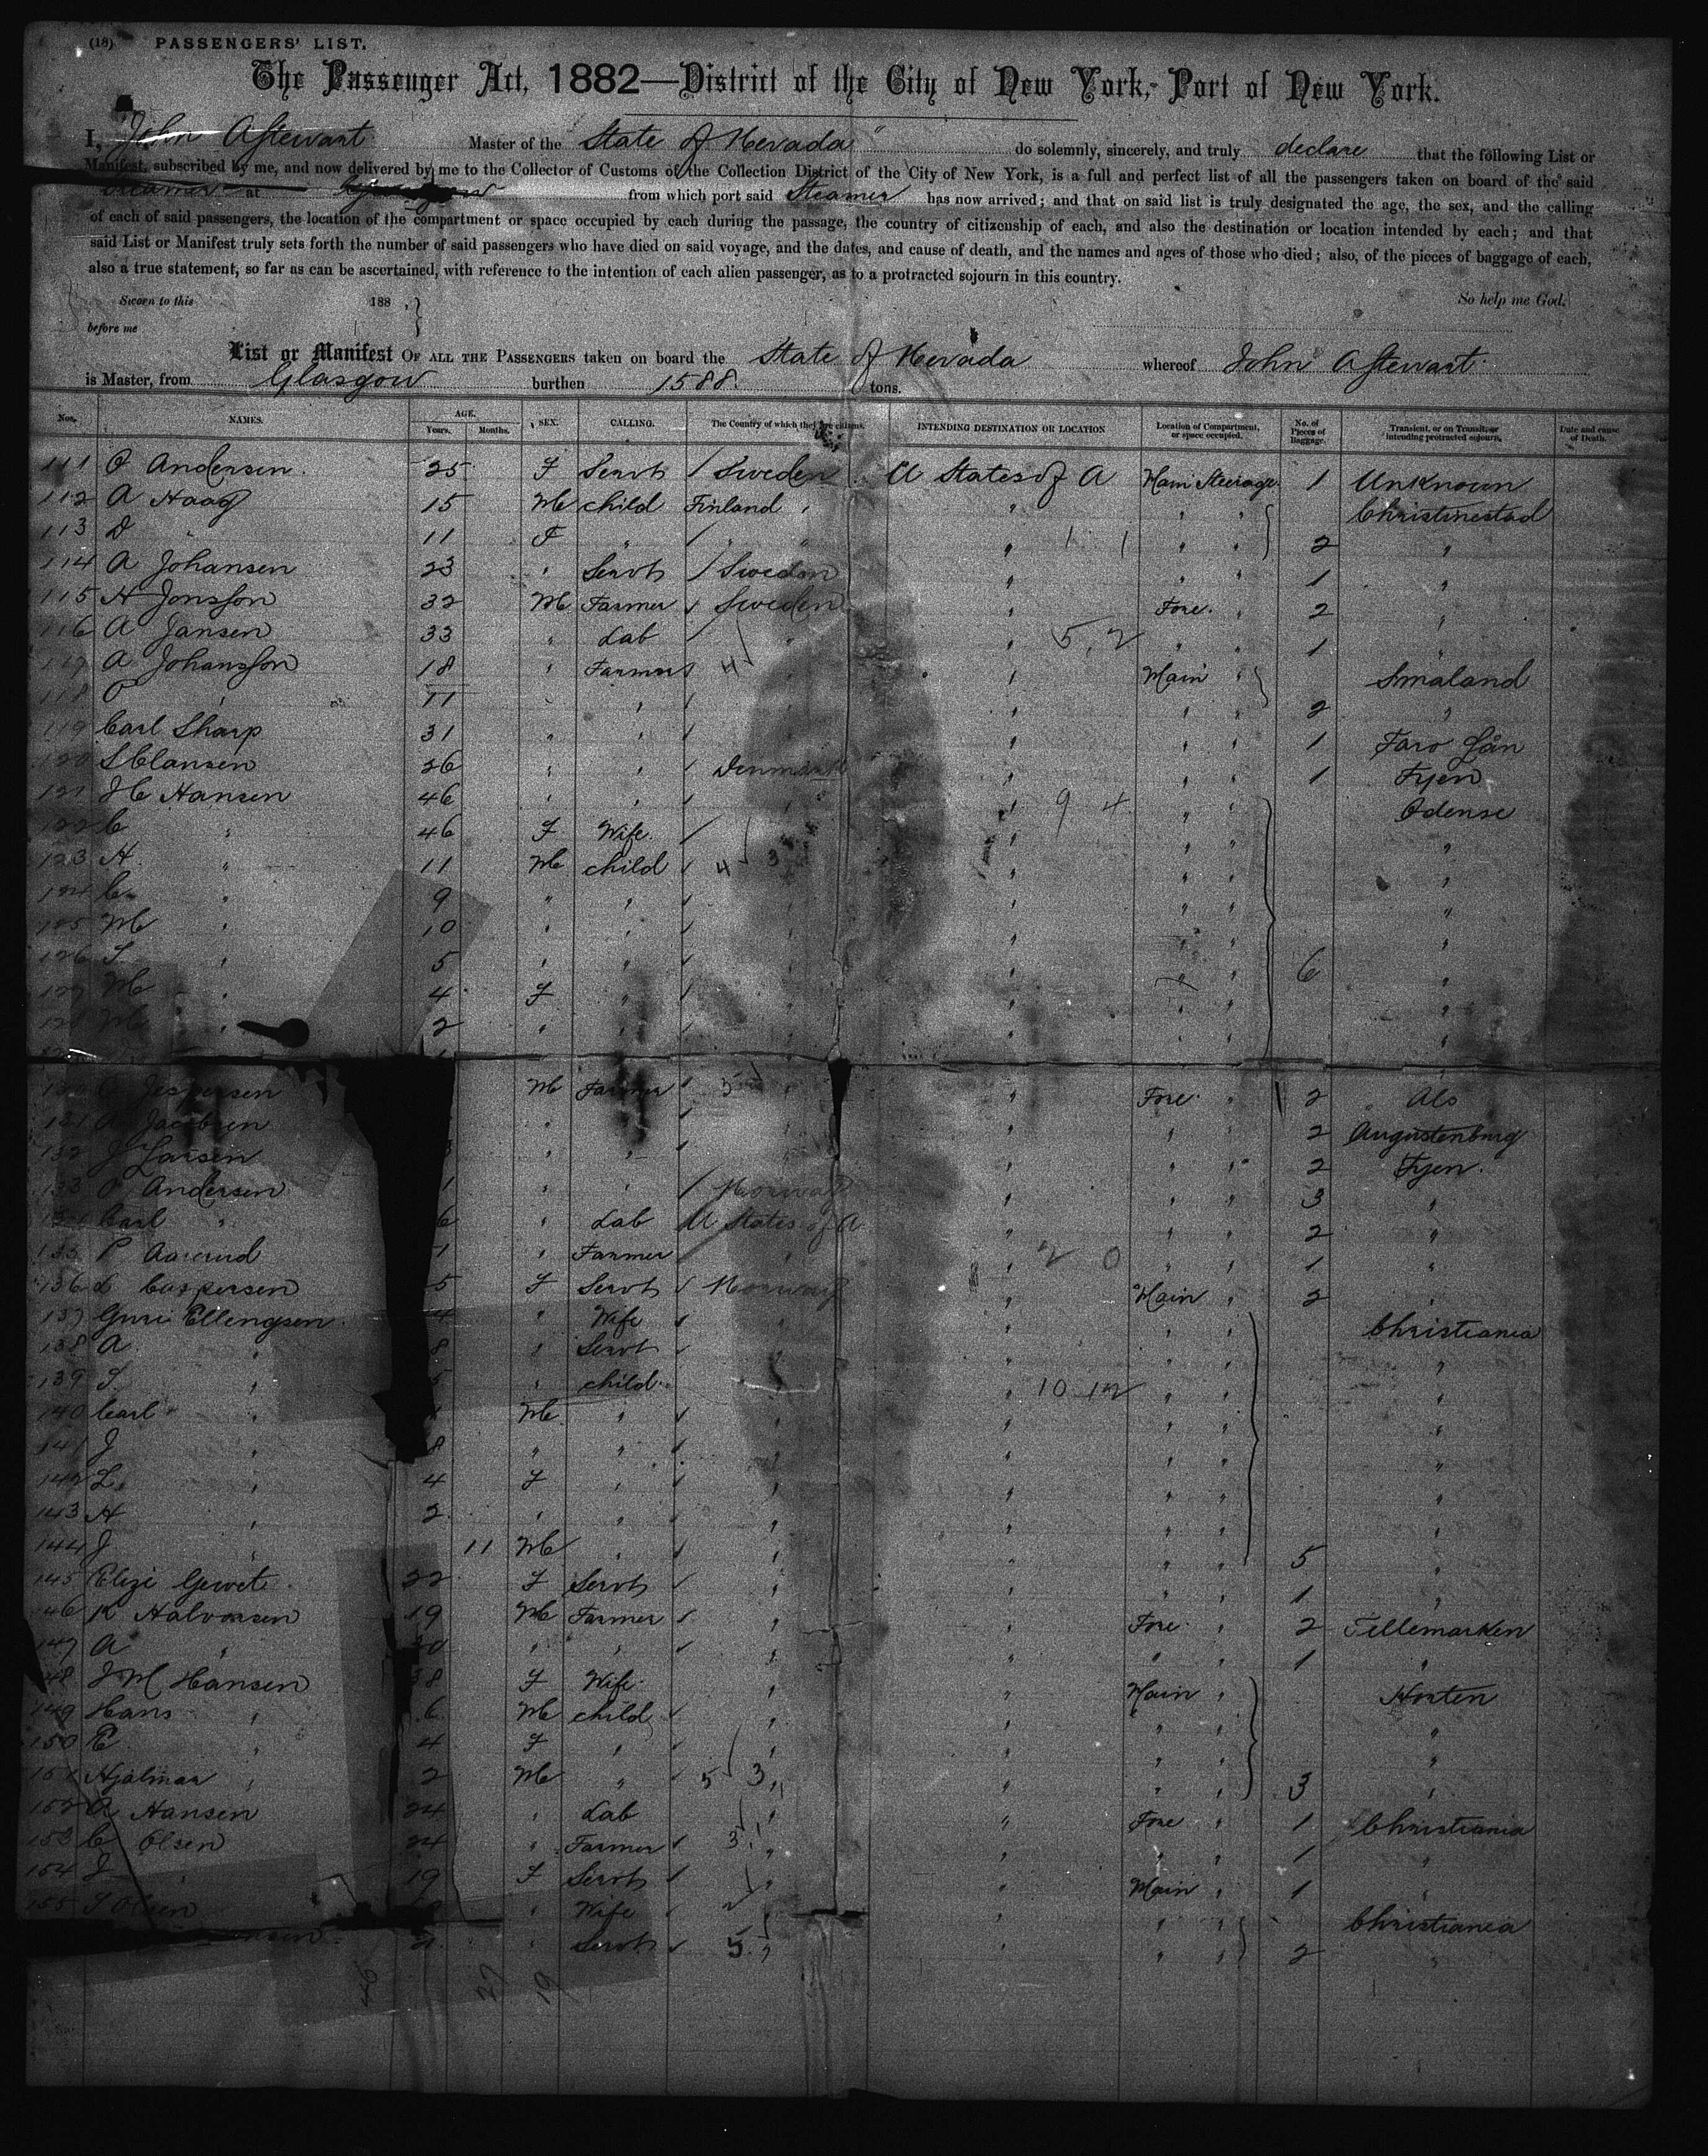 (18) PASSENGERS' LIST.
The Passenger Act, 1882—District of the City of New York, Port of New York.
I, John A Stewart Master of the State of Nevada" do solemnly, sincerely, and truly declare that the following List or
Manifest, subscribed by me, and now delivered by me to the Collector of Customs of the Collection District of the City of New York, is a full and perfect list of all the passengers taken on board of the said
Steamer at Glasgow from which port said Steamer has now arrived; and that on said list is truly designated the age, the sex, and the calling
of each of said passengers, the location of the compartment or space occupied by each during the passage, the country of citizenship of each, and also the destination or location intended by each; and that
said List or Manifest truly sets forth the number of said passengers who have died on said voyage, and the dates, and cause of death, and the names and ages of those who died; also, of the pieces of baggage of each,
also a true statement, so far as can be ascertained, with reference to the intention of each alien passenger, as to a protracted sojourn in this country.
Sworn to this 188 , } So help me God.
before me
List or Manifest OF ALL THE PASSENGERS taken on board the State of Nevada whereof John A Stewart
is Master, from Glasgow burthen 1588. tons.
Nos. NAMES. AGE. Years. Months. SEX. CALLING. The Country of which they are citizens. INTENDING DESTINATION OR LOCATION Location of Compartment, or space occupied. No. of Pieces of Baggage. Transient, or on Transit, or intending protracted sojourn. Date and cause of Death.
111 O Andersen 25 F Servt / Sweden U States of A Main Steerage 1 Unknown
112 A Haag 15 M child Finland " " " Christinestad
113 D " 11 F " / " " 1 1 " " 2 "
114 A Johansen 23 " Servt / Sweden " " " 1 "
115 H Jonsson 32 M Farmer / Sweden " Fore " 2 "
116 A Jansen 33 " Lab / " " 5, 2 " " 1 "
117 A Johansson 18 " Farmer / 4 " Main " Smaland
118 O " 11 " " / " " " " 2 "
119 Carl Sharp 31 " " / " " " 1 Faro Län
120 S Clansen 26 " " / Denmark " " " 1 Fyen
121 H C Hansen 46 " " / " 9 4 " " Odense
122 C " 46 F Wife / " " " "
123 H " 11 M child / 4 3 " " " "
124 C " 9 " " / " " " "
125 M " 10 " " / " " " "
126 S " 5 " " / " " " 6 "
127 M " 4 F " / " " " "
128 M " 2 " " / " " " "
130 Jespersen M Farmer / 5 " " Fore " 2 Als
131 Jacobsen " " / " " " 2 Augustenburg
132 J Larsen " " / " " " " 2 Fyen
133 O Andersen 1 " " / Norway " " " 3 "
134 Carl " 6 " Lab / U States of A " " " 2 "
135 P Aaserud 1 " Farmer / " " 2 0 " " 1 "
136 L Caspersen 5 F Servt / Norway " Main " 2 "
137 Guri Ellengsen 4 " Wife / " " " " Christiania
138 A " 8 " Servt / " " " " "
139 S " 5 " child " 10 12 " " "
140 Carl " M " / " " " " "
141 J " 8 " " / " " " " "
142 L " 4 F " / " " " " "
143 H " 2 " " / " " " " "
144 J " 11 M " / " " " " 5 "
145 Elizi Gewet 22 F Servt / " " " " 1 "
146 K Halvorsen 19 M Farmer / " " Fore " 2 Tellemarken
147 A " 20 " " / " " " " 1 "
148 J M Hansen 38 F Wife " " Main " Horten
149 Hans " 6 M child / " " " " "
150 E " 4 F " / " " " " "
151 Hjalmar " 2 M " / 5 3 " " " " 3 "
152 A Hansen 24 " Lab " " Fore " 1 Christiania
153 C Olsen 24 " Farmer / 3 " " " " 1 "
154 J " 19 F Servt / " " Main " 1 "
155 Olsen " Wife / 2 " " " Christiania
21 " Servt / 5 " " " " 2 "
26 27 19